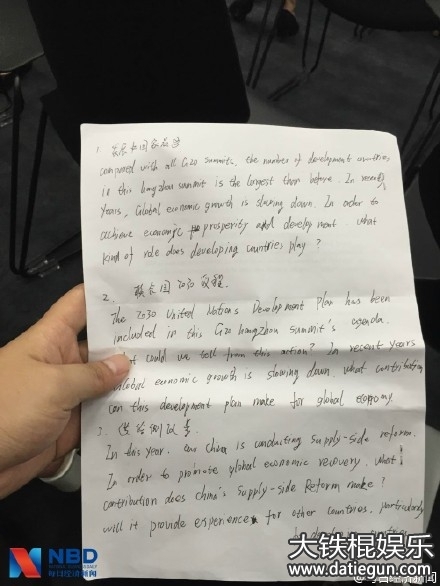 1. 发展中国家启示
compared with all G20 summits, the number of development countries
in this hangzhou summit is the largest than before. In recent
years, Global economic growth is slowing down. In order to
achieve economic prosperity and development. what
kind of role does developing countries play?
2. 联合国2030议程.
The 2030 United Nations Development Plan has been
included in this G20 hangzhou summit's agenda.
could we tell from this action? In recent years
Global economic growth is slowing down what contribution
can this development plan make for global economy
3. 供给侧改革.
In this year, China is conducting Supply-side reform.
In order to promote global economic recovery. What
contribution does china's Supply-side Reform make?
will it provide experience for other countries, particularly
countries
NBD
每日经济新闻
大铁棍娱乐
www.datiegun.com